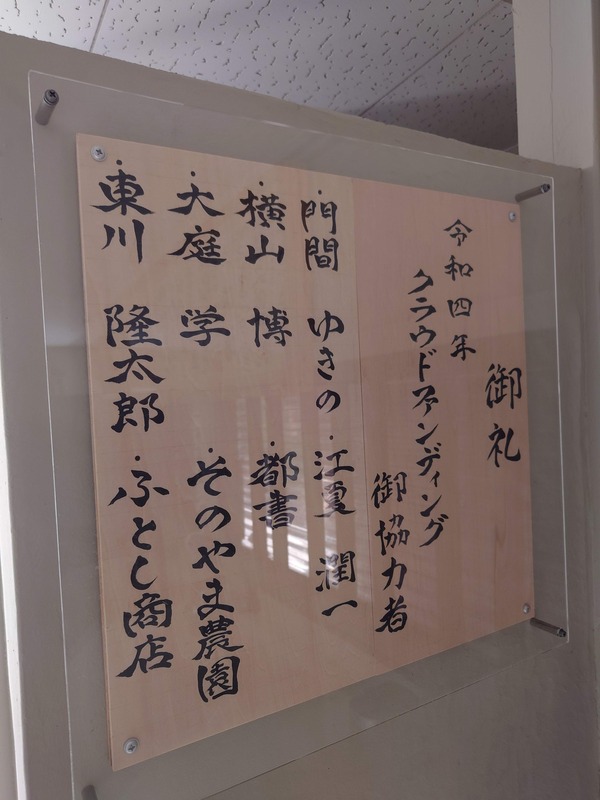 御礼
令和四年
クラウドファンディング
御協力者
・門間 ゆきの
・江夏 潤一
・横山 博
・都書
・大庭 学
・そのやま農園
・東川 隆太郎
・ふとし商店